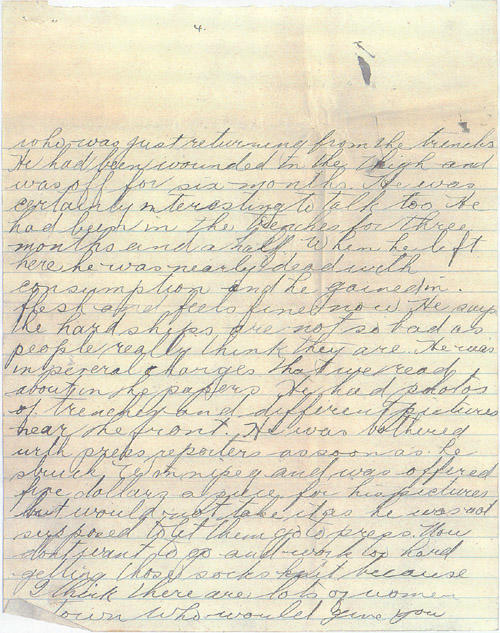 4.
who was just returning from the trenches
He had been wounded in the thigh and
was off for six months. He was
certainly interesting to talk too He
had been in the trenches for three
months and a half. When he left
here he was nearly dead with
consumption and he gained in
flesh and feels fine now He says
the hardships are not so bad as
people really think they are. He was
in several charges that we read
about in the papers He had photos
of trenches and different pictures
near the front. He was bothered
with press reporters as soon as he
struck Winnipeg and was offered
five dollars a piece for his pictures
but would not take it as he was not
supposed to let them go to press. You
don't want to go and work too hard
getting those socks knit because
I think there are lots of women
town who would give you